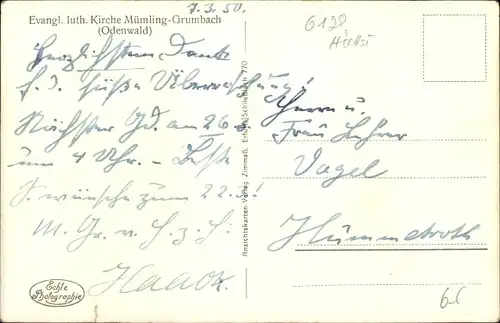 Evangl. luth. Kirche Mümling-Grumbach
(Odenwald)
7.3.50.
6128
Höchst
Herzlichsten Dank
f. d. süße Überraschung!
Nächster Gd. am 26.
um 4 Uhr. – Beste
S. wünsche zum 22.3!
M. Gr. v. H. z. H.
Haack.
Echte
Photographie
Ansichtskarten-Verlag Zimmaß, Erfurt, Schließfach 770
Herrn u.
Frau Lehrer
Vogel
Hummetroth